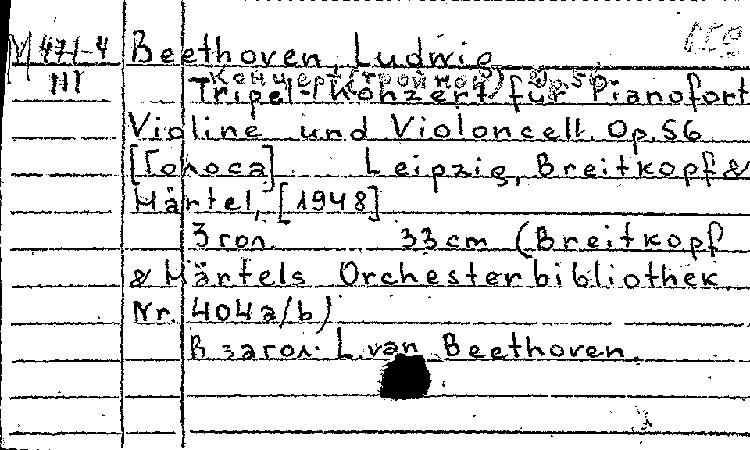 M 471-4 Beethoven, Ludwig
III Концерт (тройной) op. 56
Tripel-Konzert für Pianofort
Violine und Violoncell. Op. 56
[Голоса] Leipzig, Breitkopf &
Härtel, [1948]
3 гол. 33 cm (Breitkopf
& Härtels Orchesterbibliothek
Nr. 404a/b)
В загол: L. van Beethoven.